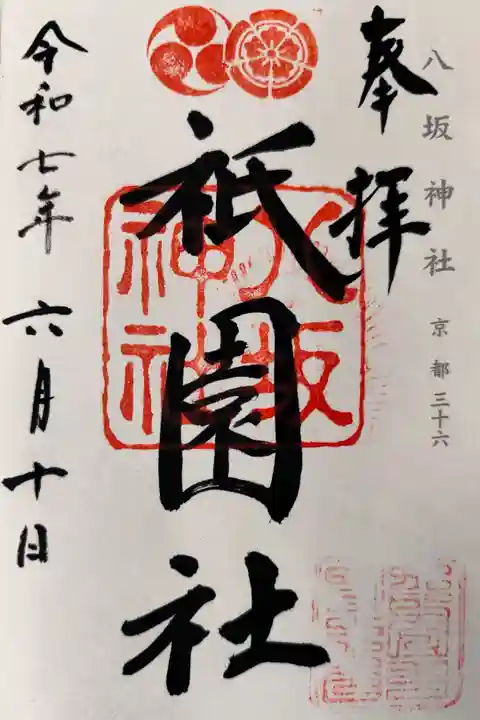 八坂神社 京都三十六
奉拝
祇園社
八坂
神社
令和七年六月十日